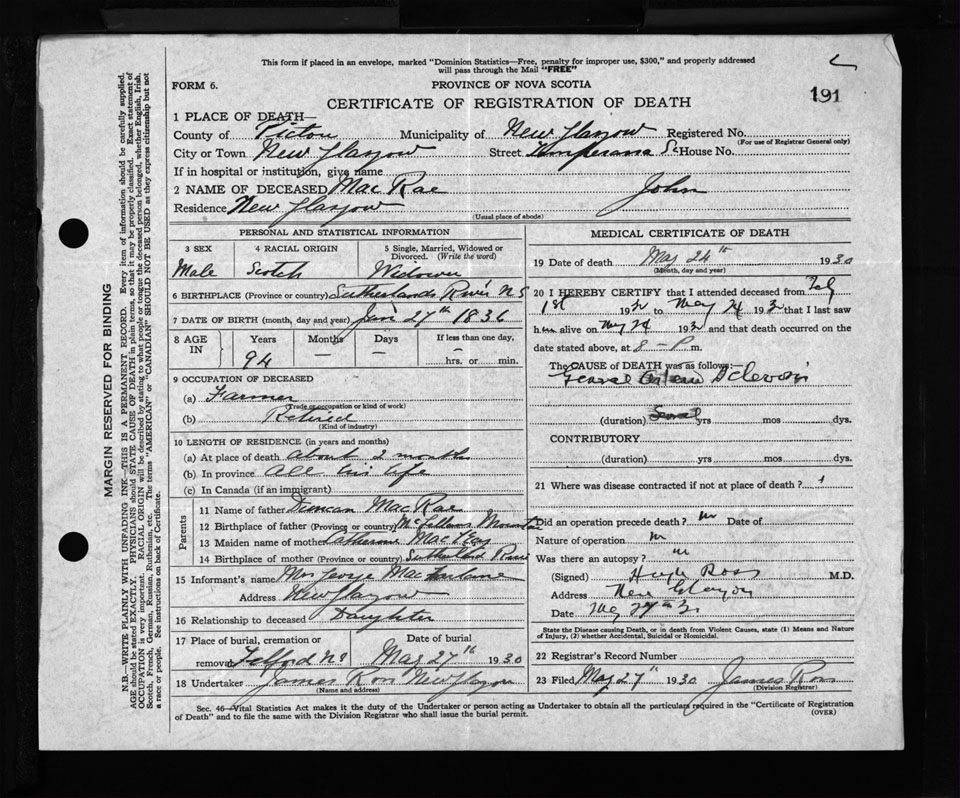 This form if placed in an envelope, marked "Dominion Statistics—Free, penalty for improper use, $300," and properly addressed
will pass through the Mail "FREE"
FORM 6.
PROVINCE OF NOVA SCOTIA
CERTIFICATE OF REGISTRATION OF DEATH
191
1 PLACE OF DEATH—
County of Pictou Municipality of New Glasgow Registered No.
(For use of Registrar General only)
City or Town New Glasgow Street House No.
If in hospital or institution, give name
2 NAME OF DECEASED Mac Rae John
Residence New Glasgow
(Usual place of abode)
PERSONAL AND STATISTICAL INFORMATION
3 SEX 4 RACIAL ORIGIN 5 Single, Married, Widowed or
Divorced. (Write the word)
Male Scotch Widower
6 BIRTHPLACE (Province or country) Sutherlands River N S
7 DATE OF BIRTH (month, day and year) Jan 27th 1836
8 AGE
IN
Years Months Days If less than one day,
94 — — —
hrs. or min.
9 OCCUPATION OF DECEASED
(a) Farmer
(Trade or occupation or kind of work)
(b) Retired
(Kind of industry)
10 LENGTH OF RESIDENCE (in years and months)
(a) At place of death about 2 months
(b) In province all his life
(c) In Canada (if an immigrant)
Parents
11 Name of father Duncan Mac Rae
12 Birthplace of father (Province or country) McLellans Mountain
13 Maiden name of mother Catherine Mac
14 Birthplace of mother (Province or country) Sutherland River
15 Informant's name Mrs George MacFarlane
Address New Glasgow
16 Relationship to deceased Daughter
17 Place of burial, cremation or Date of burial
removal Telford NS May 27th 1930
18 Undertaker James Ross New Glasgow
(Name and address)
MEDICAL CERTIFICATE OF DEATH
19 Date of death May 24th 1930
(Month, day and year)
20 I HEREBY CERTIFY that I attended deceased from Feb
1st 1930 to May 24 1930 that I last saw
him alive on May 24 1930 and that death occurred on
date stated above, at 8 — P m.
The CAUSE of DEATH was as follows:—
(duration) yrs mos dys.
CONTRIBUTORY
(duration) yrs mos dys.
21 Where was disease contracted if not at place of death?
Did an operation precede death? no Date of
Nature of operation
Was there an autopsy? no
(Signed) Hugh Ross M.D.
Address New Glasgow
Date May 27th 30
State the Disease causing Death, or in death from Violent Causes, state (1) Means and Nature
of Injury, (2) whether Accidental, Suicidal or Homicidal.
22 Registrar's Record Number
23 Filed May 27" 1930 James Ross
(Division Registrar)
Sec. 46—Vital Statistics Act makes it the duty of the Undertaker or person acting as Undertaker to obtain all the particulars required in the "Certificate of Registration
of Death" and to file the same with the Division Registrar who shall issue the burial permit.
(OVER)
MARGIN RESERVED FOR BINDING
N.B.—WRITE PLAINLY WITH UNFADING INK—THIS IS A PERMANENT RECORD. Every item of information should be carefully supplied.
AGE should be stated EXACTLY. PHYSICIANS should STATE CAUSE OF DEATH in plain terms, so that it may be properly classified. Exact statement of
OCCUPATION is very important. RACIAL ORIGIN will be described by stating to what people or tongue the deceased person belonged, whether English, Irish,
Scotch, French, German, Russian, Ruthenian, etc. The terms "AMERICAN" or "CANADIAN" SHOULD NOT BE USED as they express citizenship but not
a race or people. See instructions on back of Certificate.